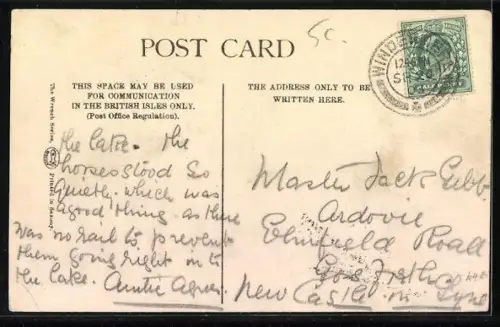 5c.
POST CARD
WINDERMERE
THIS SPACE MAY BE USED
FOR COMMUNICATION
IN THE BRITISH ISLES ONLY.
(Post Office Regulation).
THE ADDRESS ONLY TO BE
WRITTEN HERE.
The Wrench Series,
Printed in Saxony
the lake. the
horses stood so
quietly. which was
a good thing as there
was no rail to prevent
them going right in to
the lake. Auntie Agnes.
Master Jack Gibb.
Ardovie
Elmfield Road
Gosforth
New Castle on Tyne